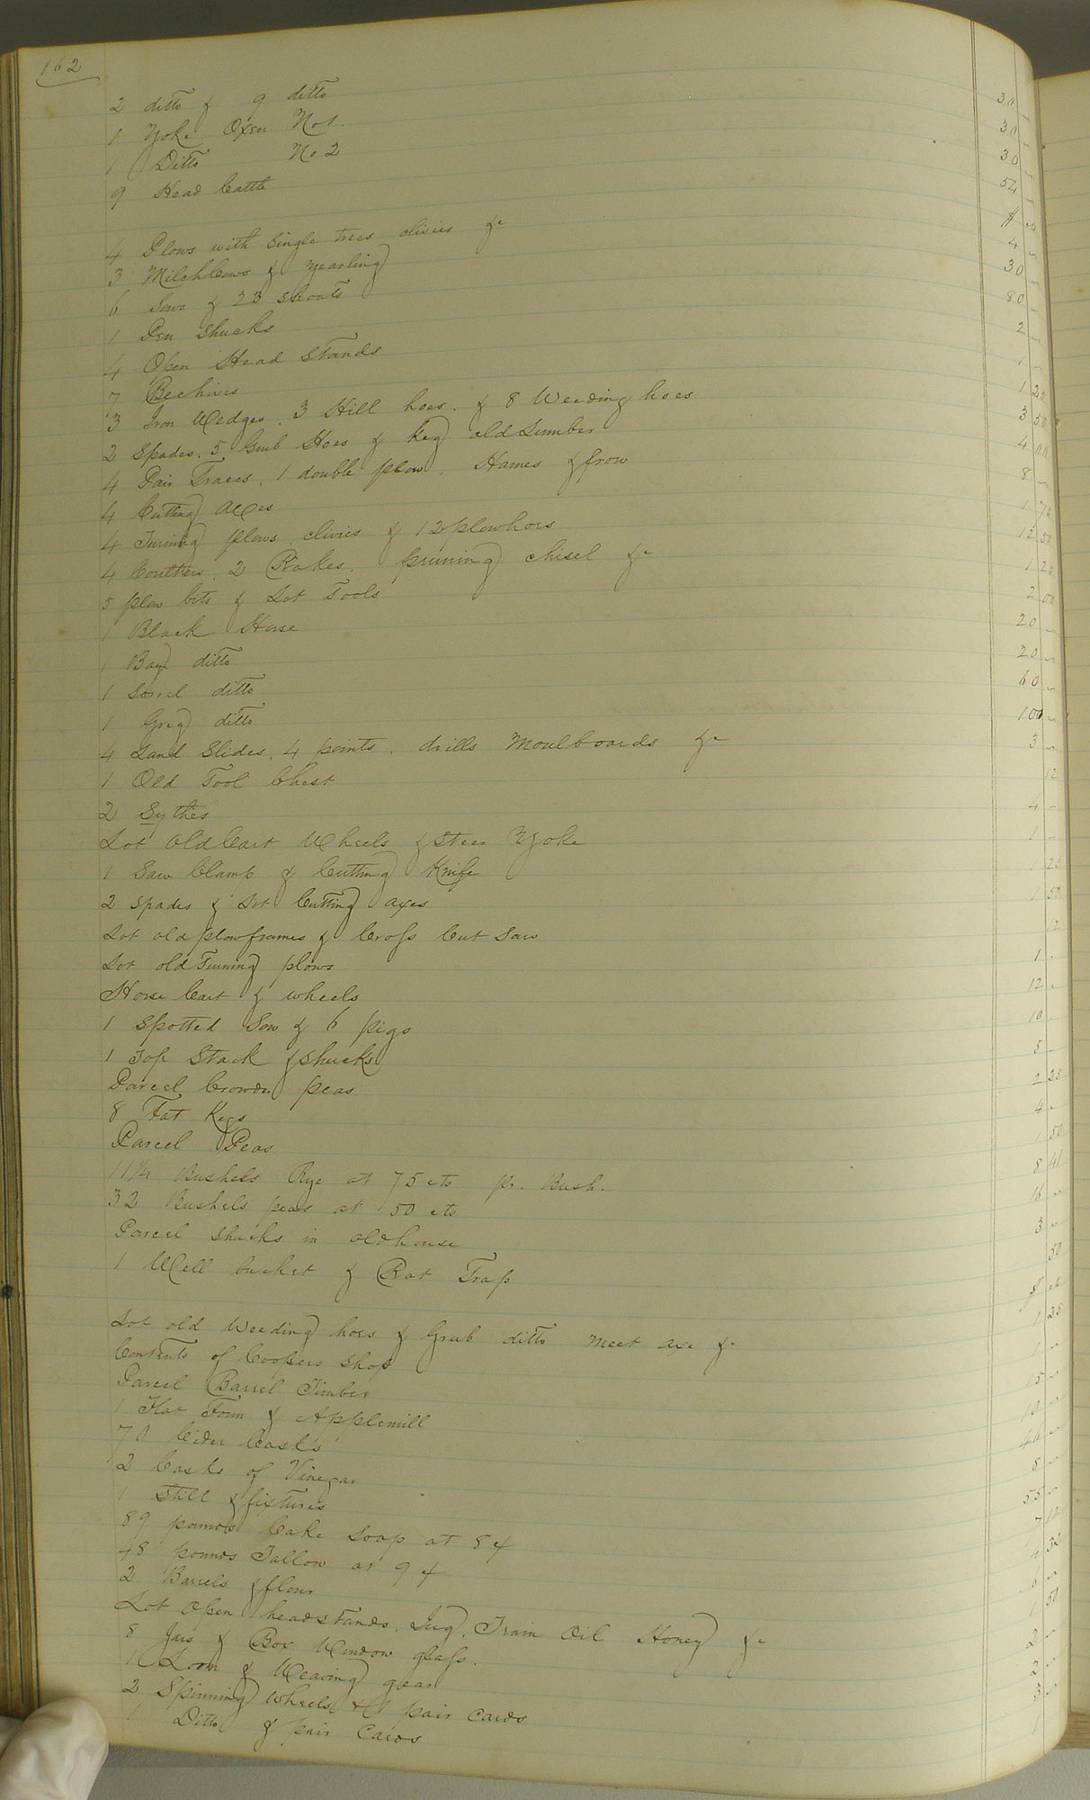 162
2 ditto & 9 ditto 30
1 Yoke Oxen No 1 30
1 Ditto No 2 30
9 Head Cattle 54
4 Plows with single trees clivies &c 4
3 Milch Cows & yearling 30
6 Sows & 23 shoats 80
1 Pen shucks 2
4 Open Head Stands 1
7 Beehives 1
3 Iron Wedges. 3 Hill hoes. & 8 Weeding hoes 3 50
2 Spades. 5 Grub Hoes & Keg old Lumber 4
4 Pair Traces. 1 double plow. Hames & frow 8
4 Cutting axes 1
4 Turning plows clivies & 12 plowhoes 12 50
4 Coulters. 2 Rakes. pruning chisel &c 1 25
5 plow bits & Lot Tools 2 00
1 Black Horse 20
1 Bay ditto 20
1 Sorrel ditto 60
1 Grey ditto 100
4 Land Slides. 4 points. drills Moulboards &c 3
1 Old Tool Chest 12
2 Sythes 4
Lot Old Cart Wheels & Steer Yoke 1
1 Saw Clamp & Cutting Knife 25
2 Spades & Lot Cutting axes 1 50
Lot old plow frames & Cross Cut Saw 12
Lot old Turning plows 1
Horse Cart & wheels 12
1 Spotted Sow & 6 pigs 10
1 Top Stack & shucks 5
Parcel Crowder peas 2 25
8 Fat Kegs 4
Parcel Peas 1 50
11 1/4 Bushels Rye at 75 cts pr. Bush. 8 41
32 Bushels peas at 50 cts 16
Parcel shucks in old house 3
1 Well bucket & Rat Trap 50
Lot old Weeding hoes & Grub ditto Meet axe &c 1 25
Contents of Coopers Shop 1
Parcel Barrel Timber 15
1 Flat Form & Applemill 10
70 Cider Casks 46
2 Casks of Vinegar 8
1 Still & fixtures 55
89 pounds Cake Soap at 8 ¢ 7 12
48 pounds Tallow at 9 ¢ 4 32
2 Barrels & flour 6
Lot Open headstands. Jug. Train Oil Honey &c 1 50
8 Jars & Box Window glass. 2
1 Loom & Weaving gear 2
2 Spinning Wheels & 1 pair cards 3
1 Ditto & pair Cards 1